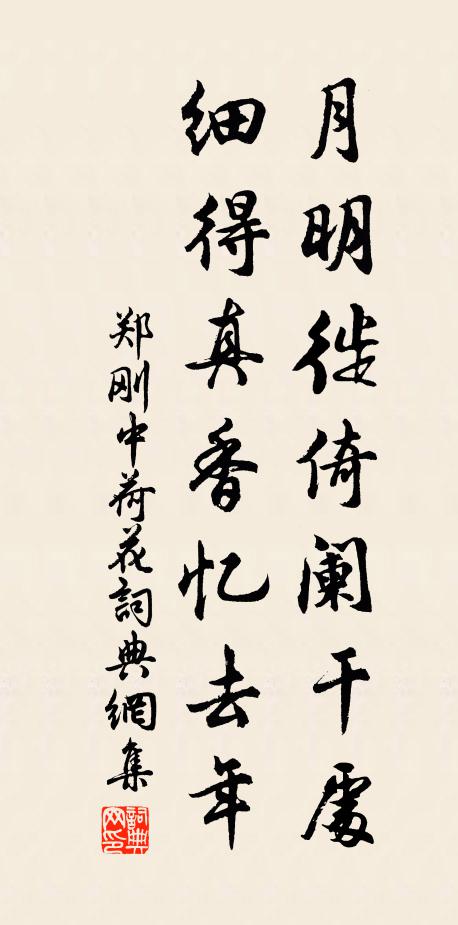 月明徙倚阑干處
细得真香忆去年
郑刚中荷花詞典網集
詞典
网印